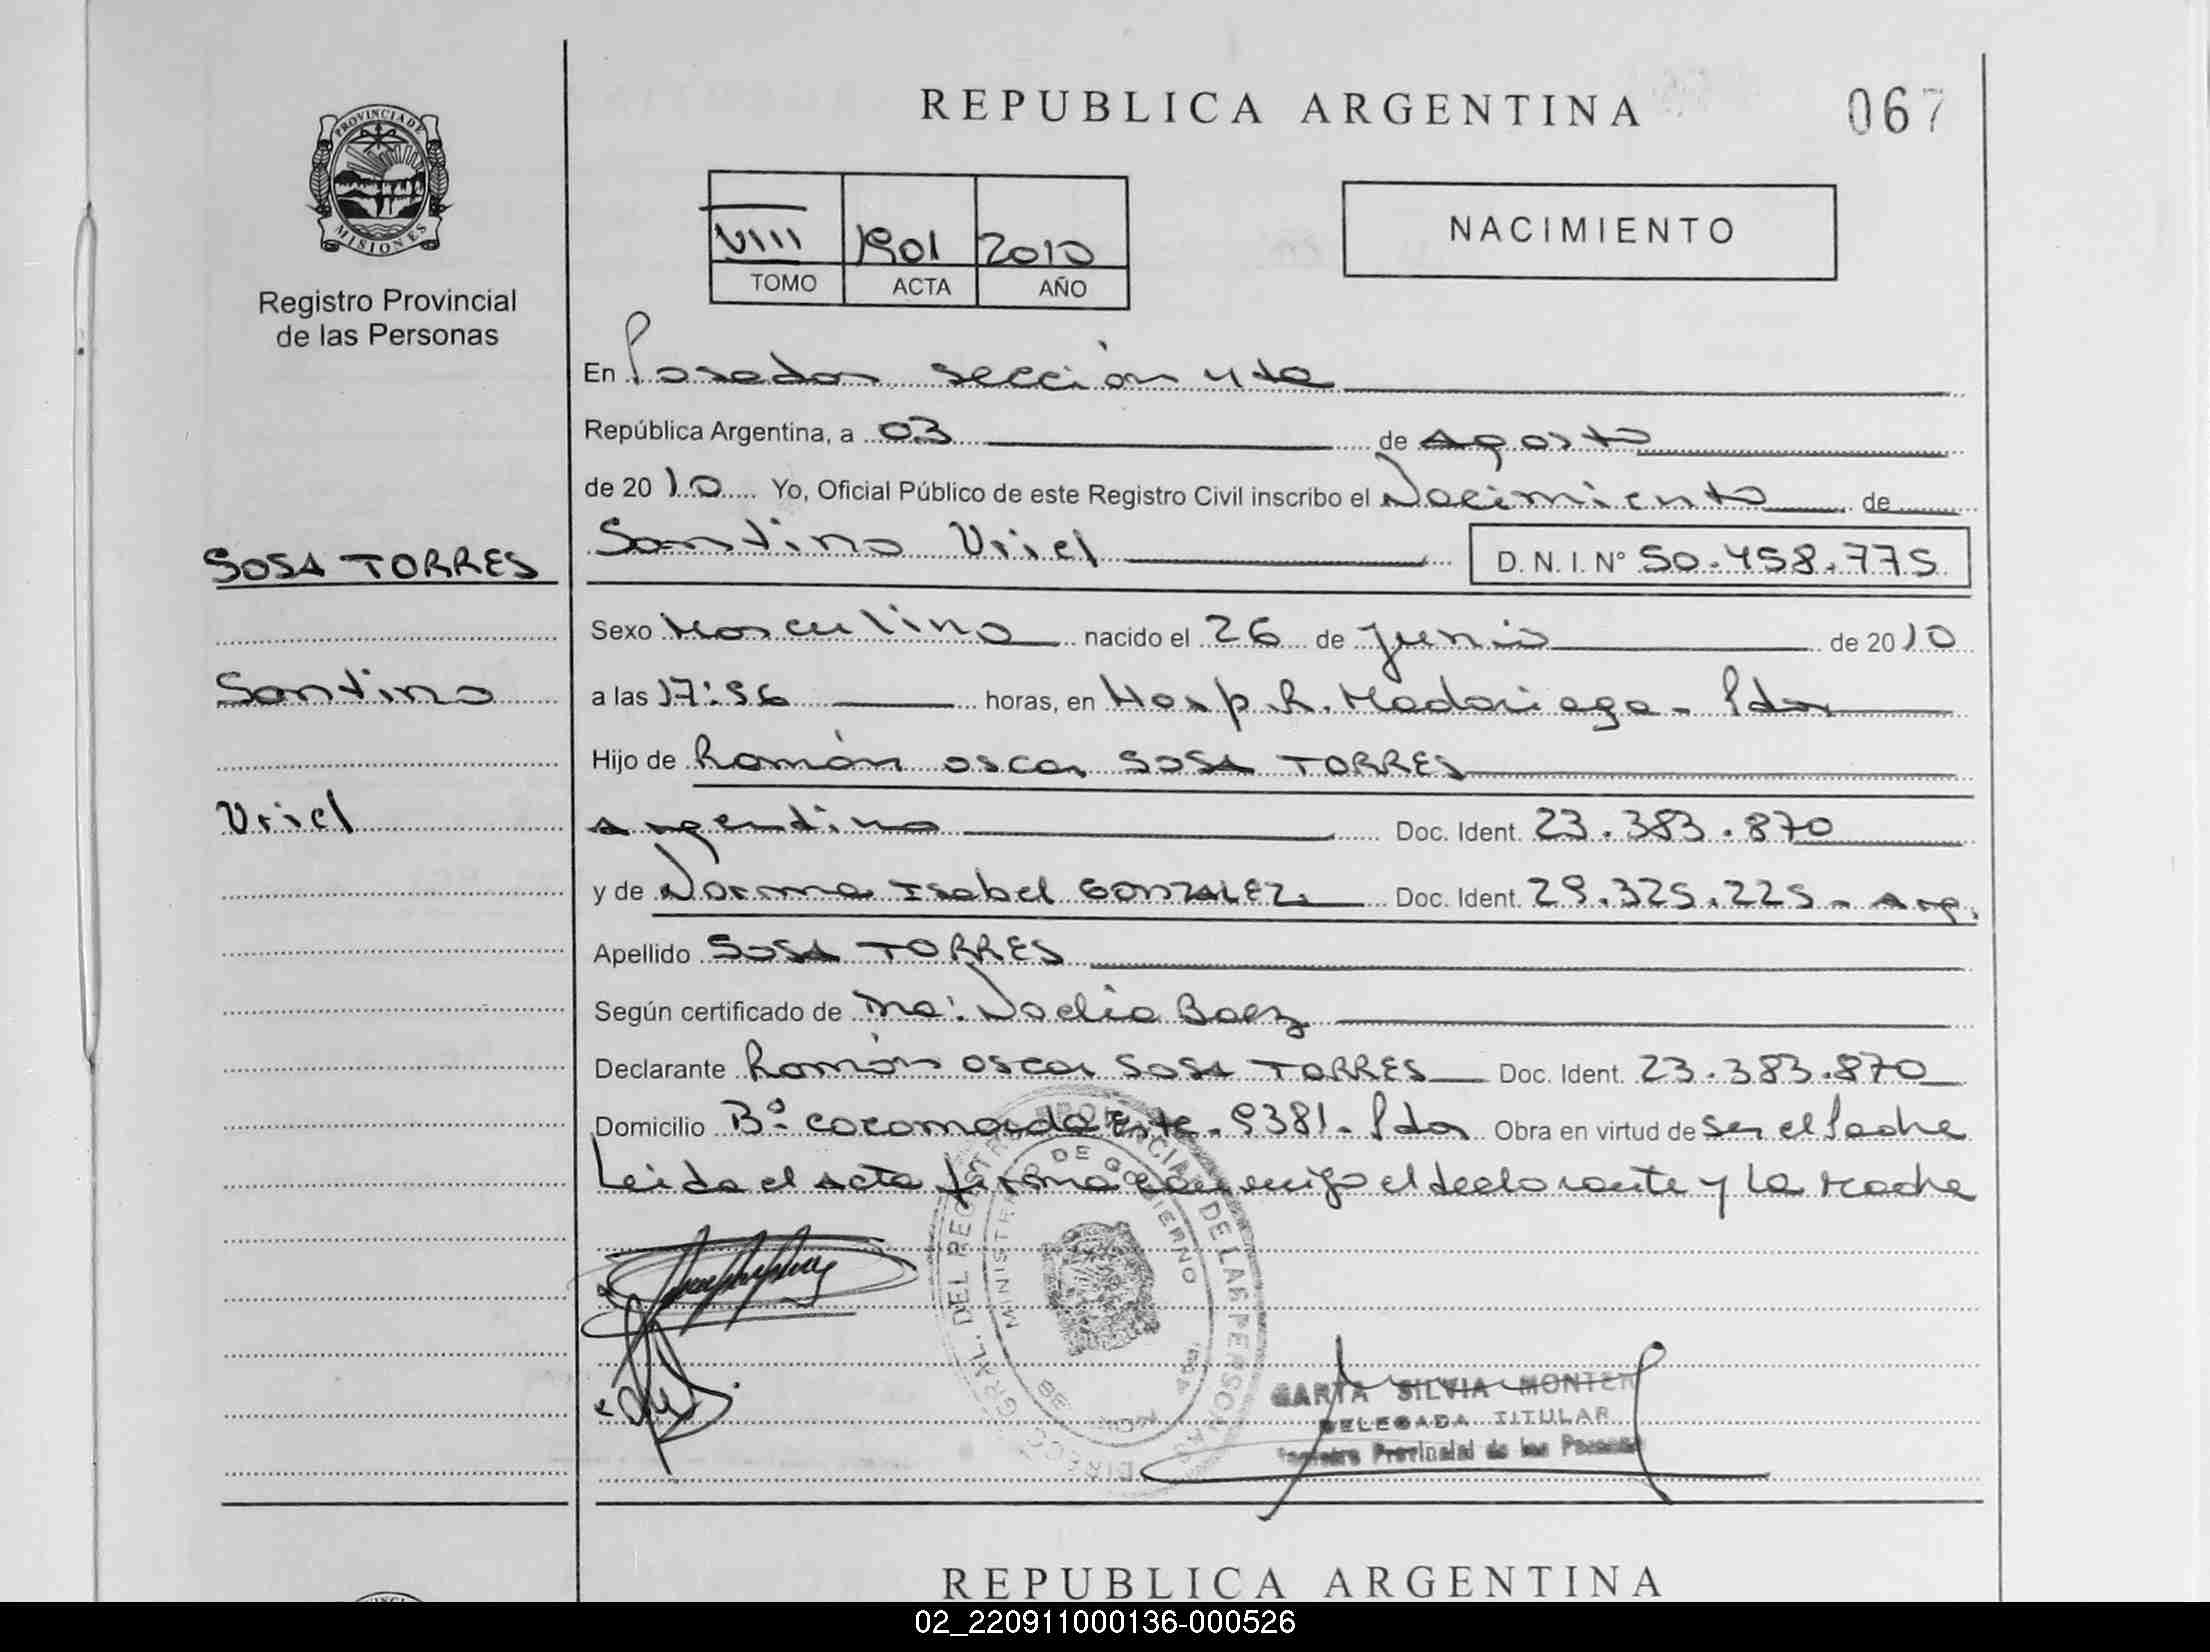 REPUBLICA ARGENTINA
067
PROVINCIA DE
MISIONES
Registro Provincial
de las Personas
NACIMIENTO
VIII 1901 2010
TOMO ACTA AÑO
En Posadas sección 4ta
República Argentina, a 03 de Agosto
de 2010 Yo, Oficial Público de este Registro Civil inscribo el Nacimiento de
SOSA TORRES
Santino Uriel D. N. I. N° 50.458.775
Sexo Masculino nacido el 26 de Junio de 2010
Santino
a las 17:56 horas, en Hosp. R. Madariaga - Pdas
Hijo de Román Oscar SOSA TORRES
Uriel
Argentino Doc. Ident. 23.383.870
y de Norma Isabel GONZALEZ. Doc. Ident. 29.325.225 - Arg.
Apellido SOSA TORRES
Según certificado de Noelia Baez
Declarante Román Oscar SOSA TORRES Doc. Ident. 23.383.870
Domicilio B° Este - 9381 - Pdas Obra en virtud de ser el Padre
Leida el acta firma conmigo el declarante y La Madre
MINISTERIO DE GOBIERNO
DEL REGISTRO PROVINCIAL DE LAS PERSONAS
SILVIA MONTER
DELEGADA TITULAR
Registro Provincial de las Personas
REPUBLICA ARGENTINA
02_220911000136-000526